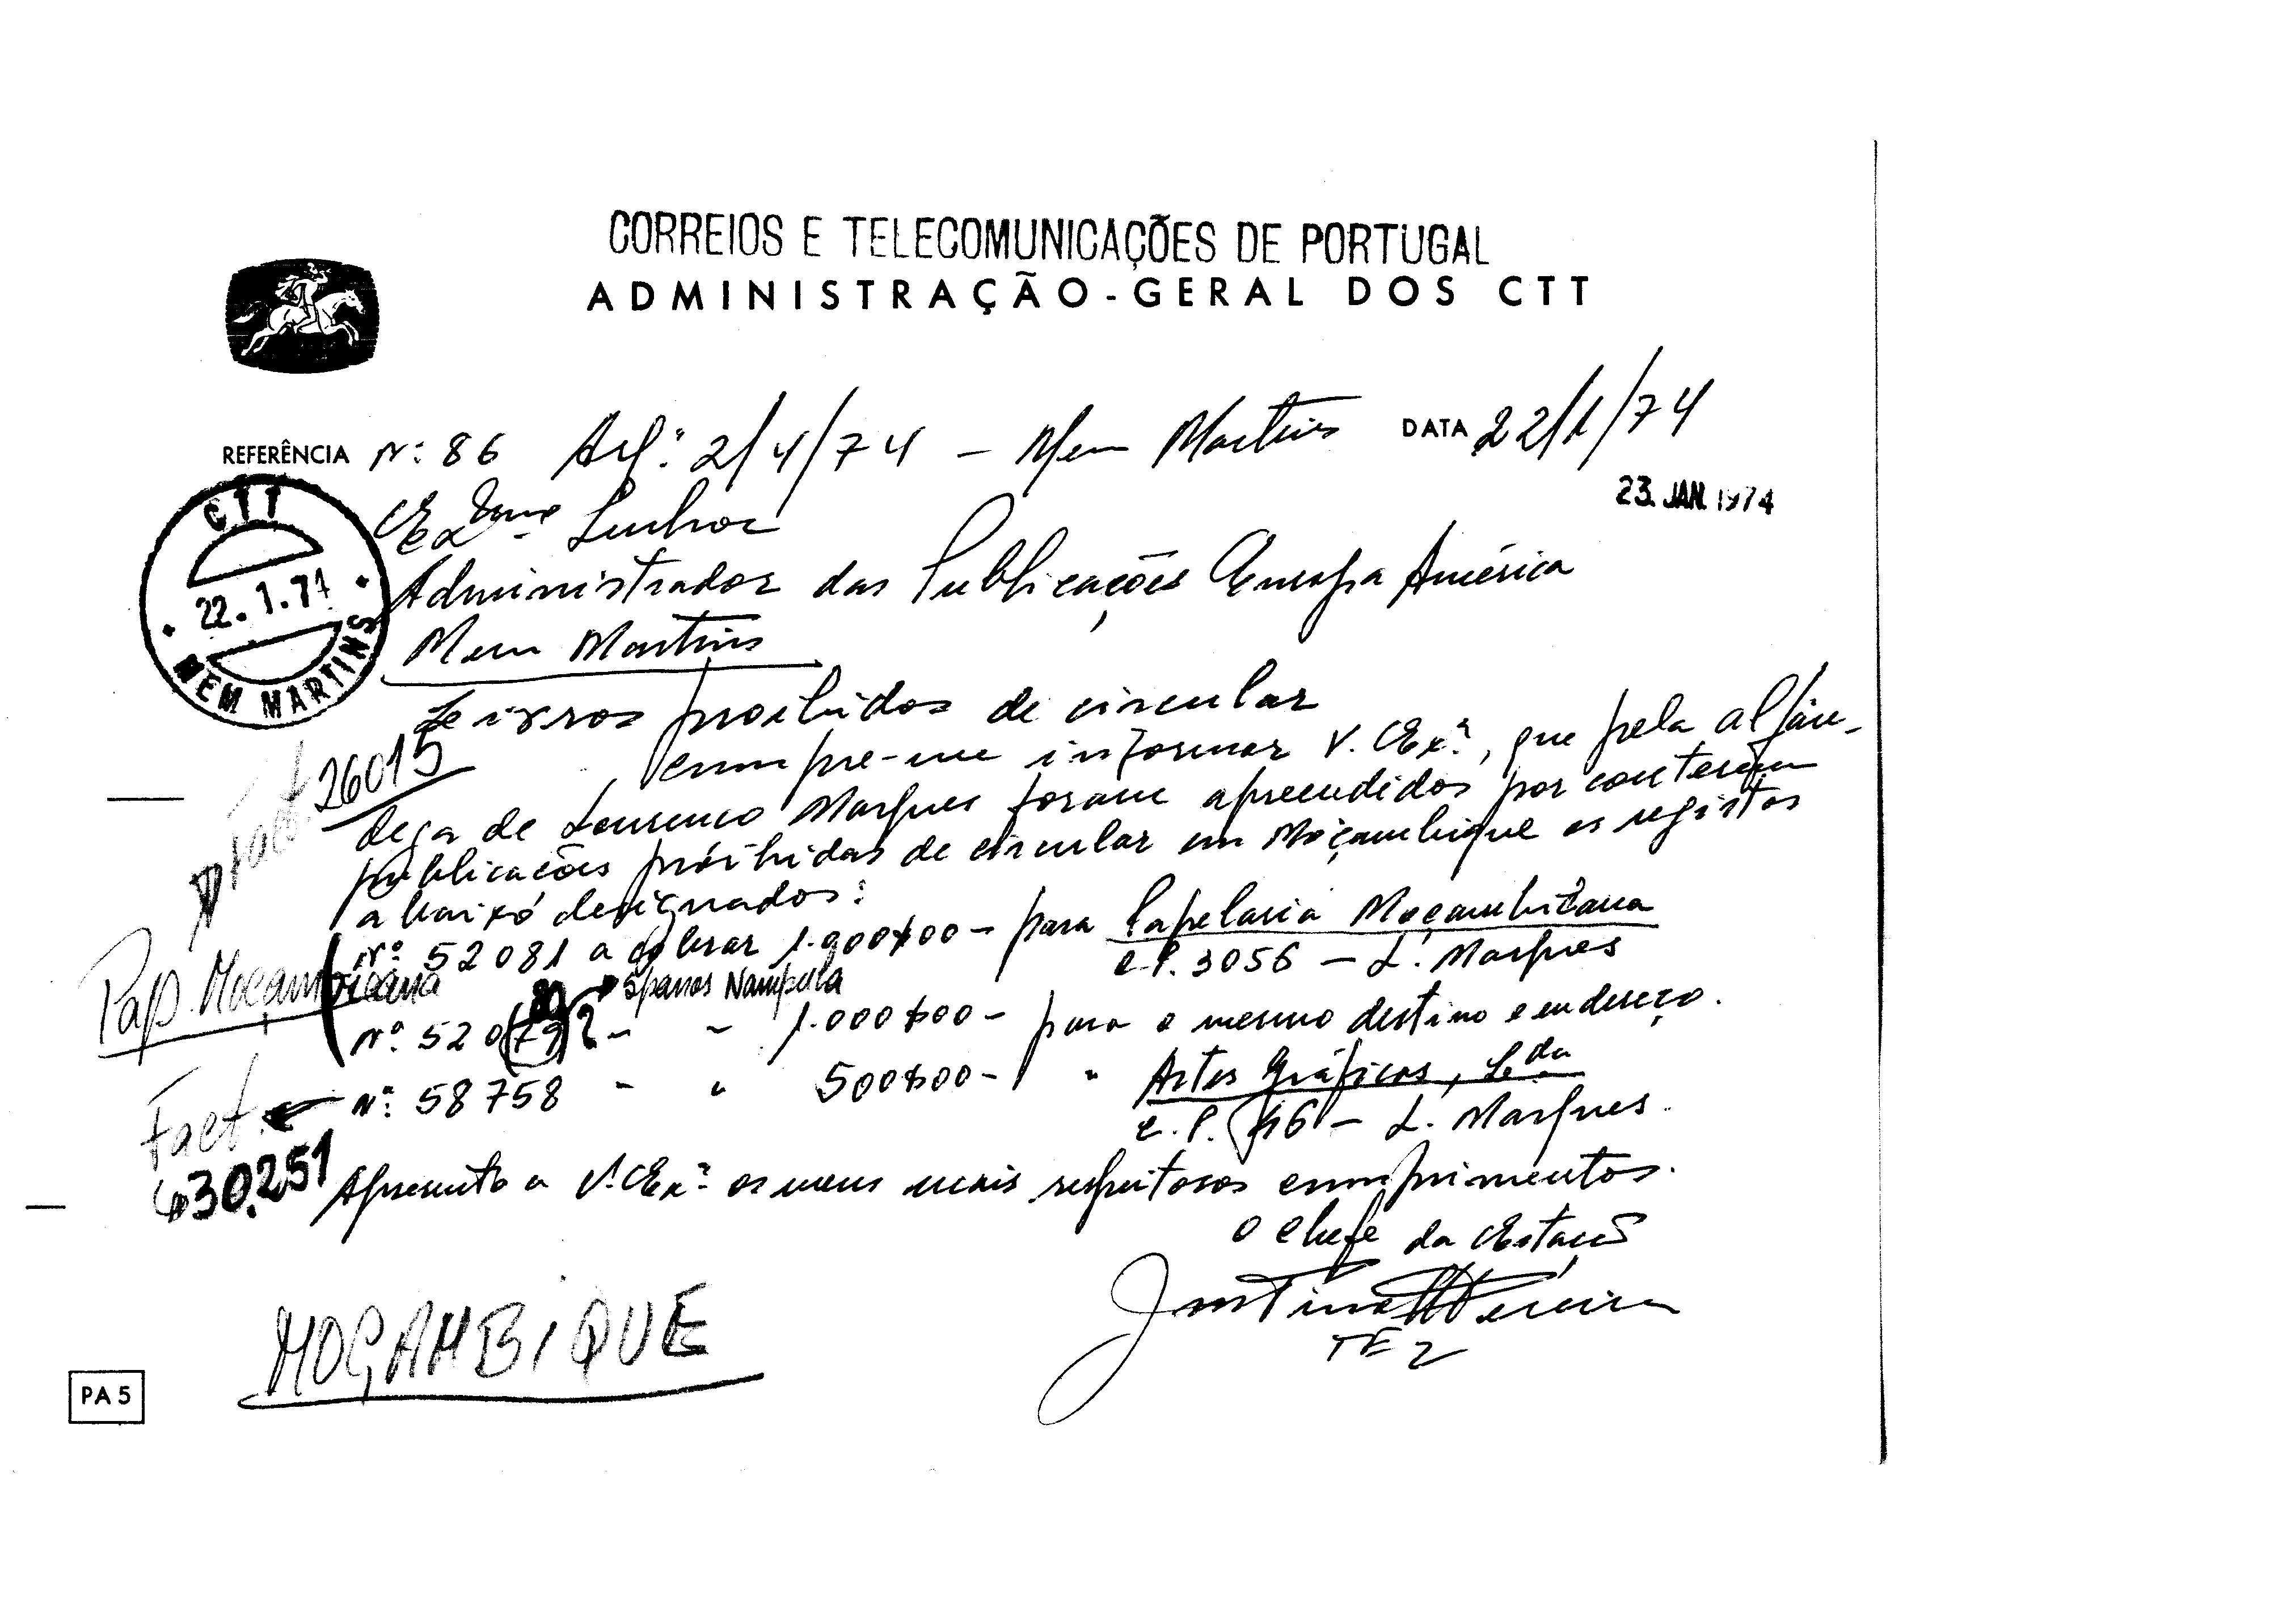 CORREIOS E TELECOMUNICAÇÕES DE PORTUGAL
ADMINISTRAÇÃO-GERAL DOS CTT
REFERÊNCIA Nº 86 Arqº 2/4/74 - Mem Martins DATA 22/1/74
23. JAN. 1974
CTT
22.1.74
MEM MARTINS
Exmo Senhor
Administrador das Publicações Europa América
Mem Martins
Livros proibidos de circular
Cumpre-me informar V. Exª, que pela alfân-
dega de Lourenço Marques foram apreendidos por conterem
publicações proíbidas de circular em Moçambique os registos
abaixo designados:
Nº 52081 a cobrar 1.900$00 - para Papelaria Moçambicana
C.P. 3056 - L. Marques
Nº 52079 - - 1.000$00 - para o mesmo destino e endereço.
Nº 58758 - " 500$00 - " Artes Gráficas, Lda
C.P. 46 - L. Marques.
Apresento a V. Exª os meus mais respeitosos cumprimentos.
O Chefe da Estação
Justino Pereira
TE 2
26015
Pap. Moçambicana
80 Spanos Nampula
Fact.
30.251
MOÇAMBIQUE
PA 5